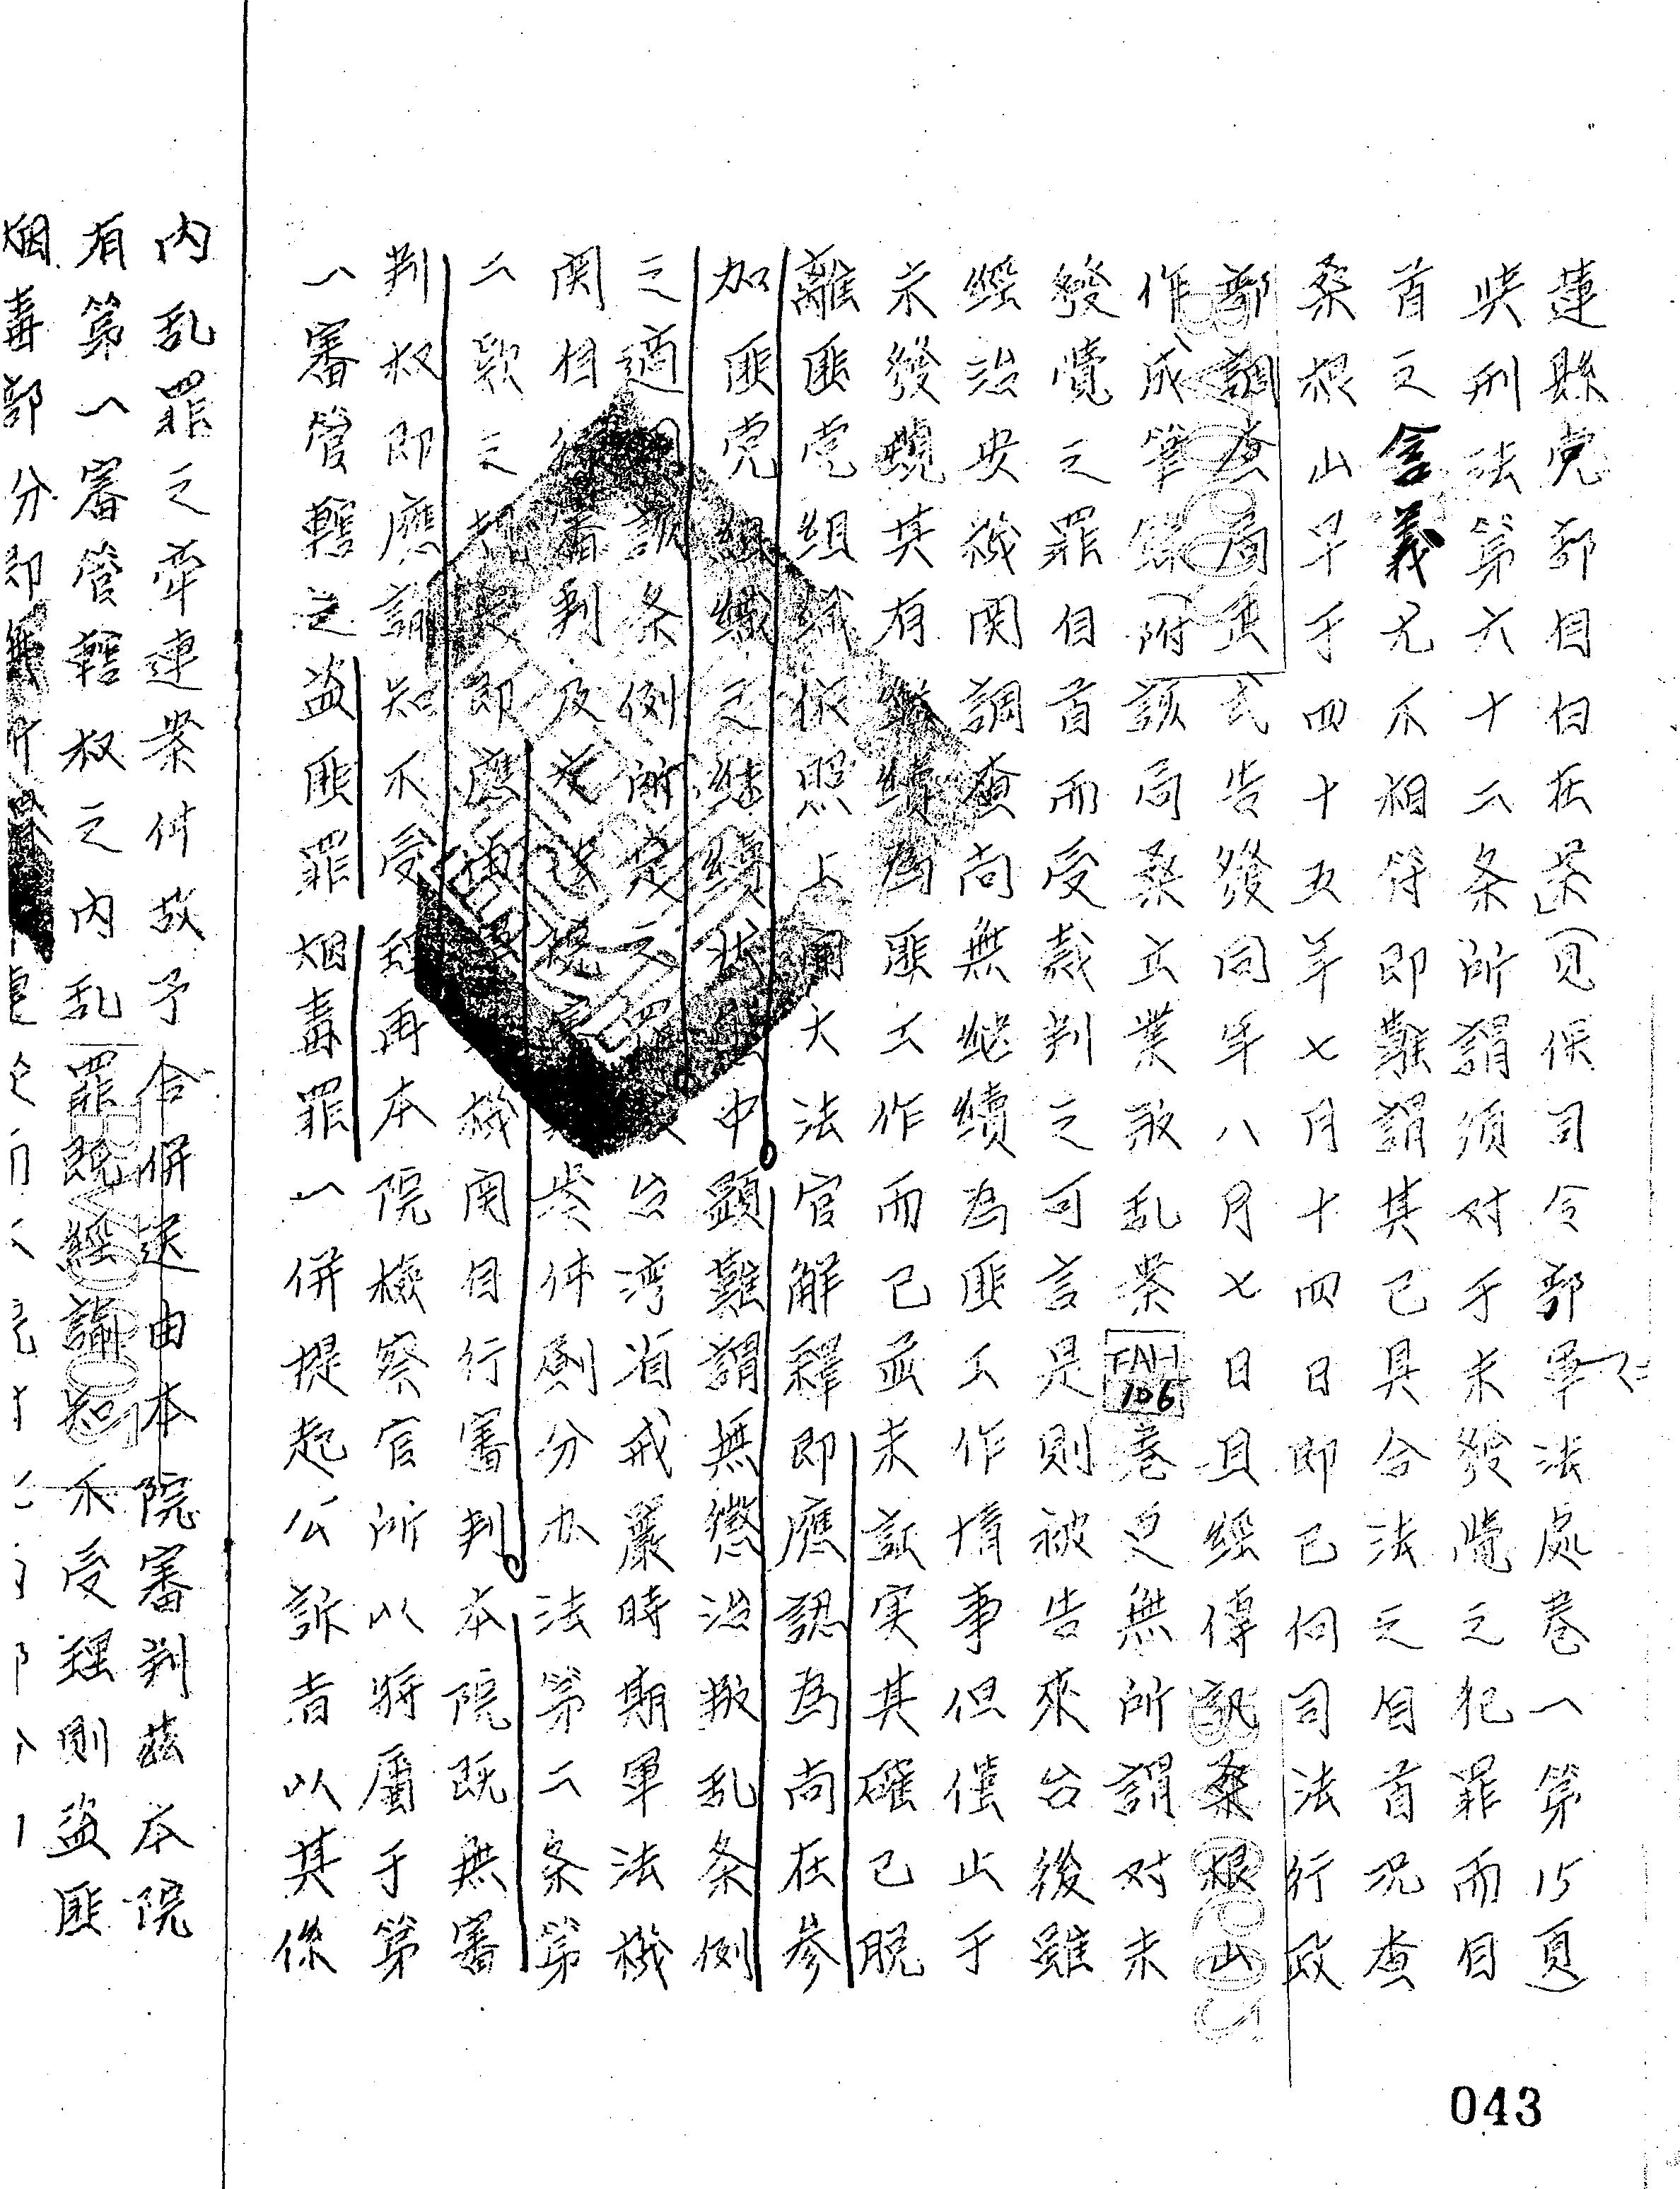 蓮縣党部自白在案」(見保司令部軍法處卷一第15頁)
与刑法第六十二条所謂須对于未發覺之犯罪而自
首之含義尤不相符即難謂其已具合法之自首況查
桑根山早于四十五年七月十四日即已向司法行政
部調查局正式告發同年八月七日且經傳訊桑根山
作成筆錄(附該局桑立業叛乱案 卷更無所謂对未
發覺之罪自首而受裁判之可言是則被告來台後雖
經治安機関調查尚無継續為匪工作情事但僅止于
未發現其有継續為匪工作而已並未証实其確已脱
離匪党組織依照上開大法官解釋即應認為尚在參
加匪党組織之継續狀態中顯難謂無懲治叛乱条例
之適用該条例所定之罪 台湾省戒嚴時期軍法機
関自行審判及交法院審 与件劃分办法第二条第
二款之 即應 機関自行審判本院既無審
判权即應諭知不受理再本院檢察官所以將屬于第
一審管轄之盗匪罪烟毒罪一併提起公訴者以其係
内乱罪之牽連案件故予合併送由本院審判茲本院
有第一審管轄权之内乱罪既經諭知不受理則盗匪
烟毒部分即無
FAH
106
043